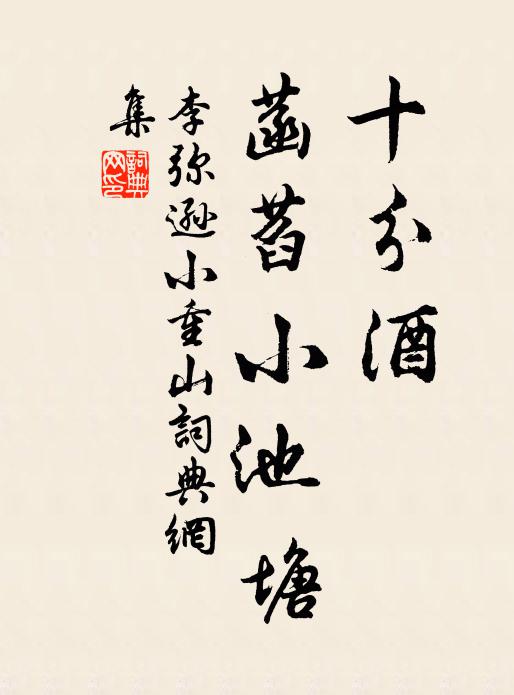 十分酒
菡萏小池塘
李弥逊小重山詞典網
集
詞典
网印